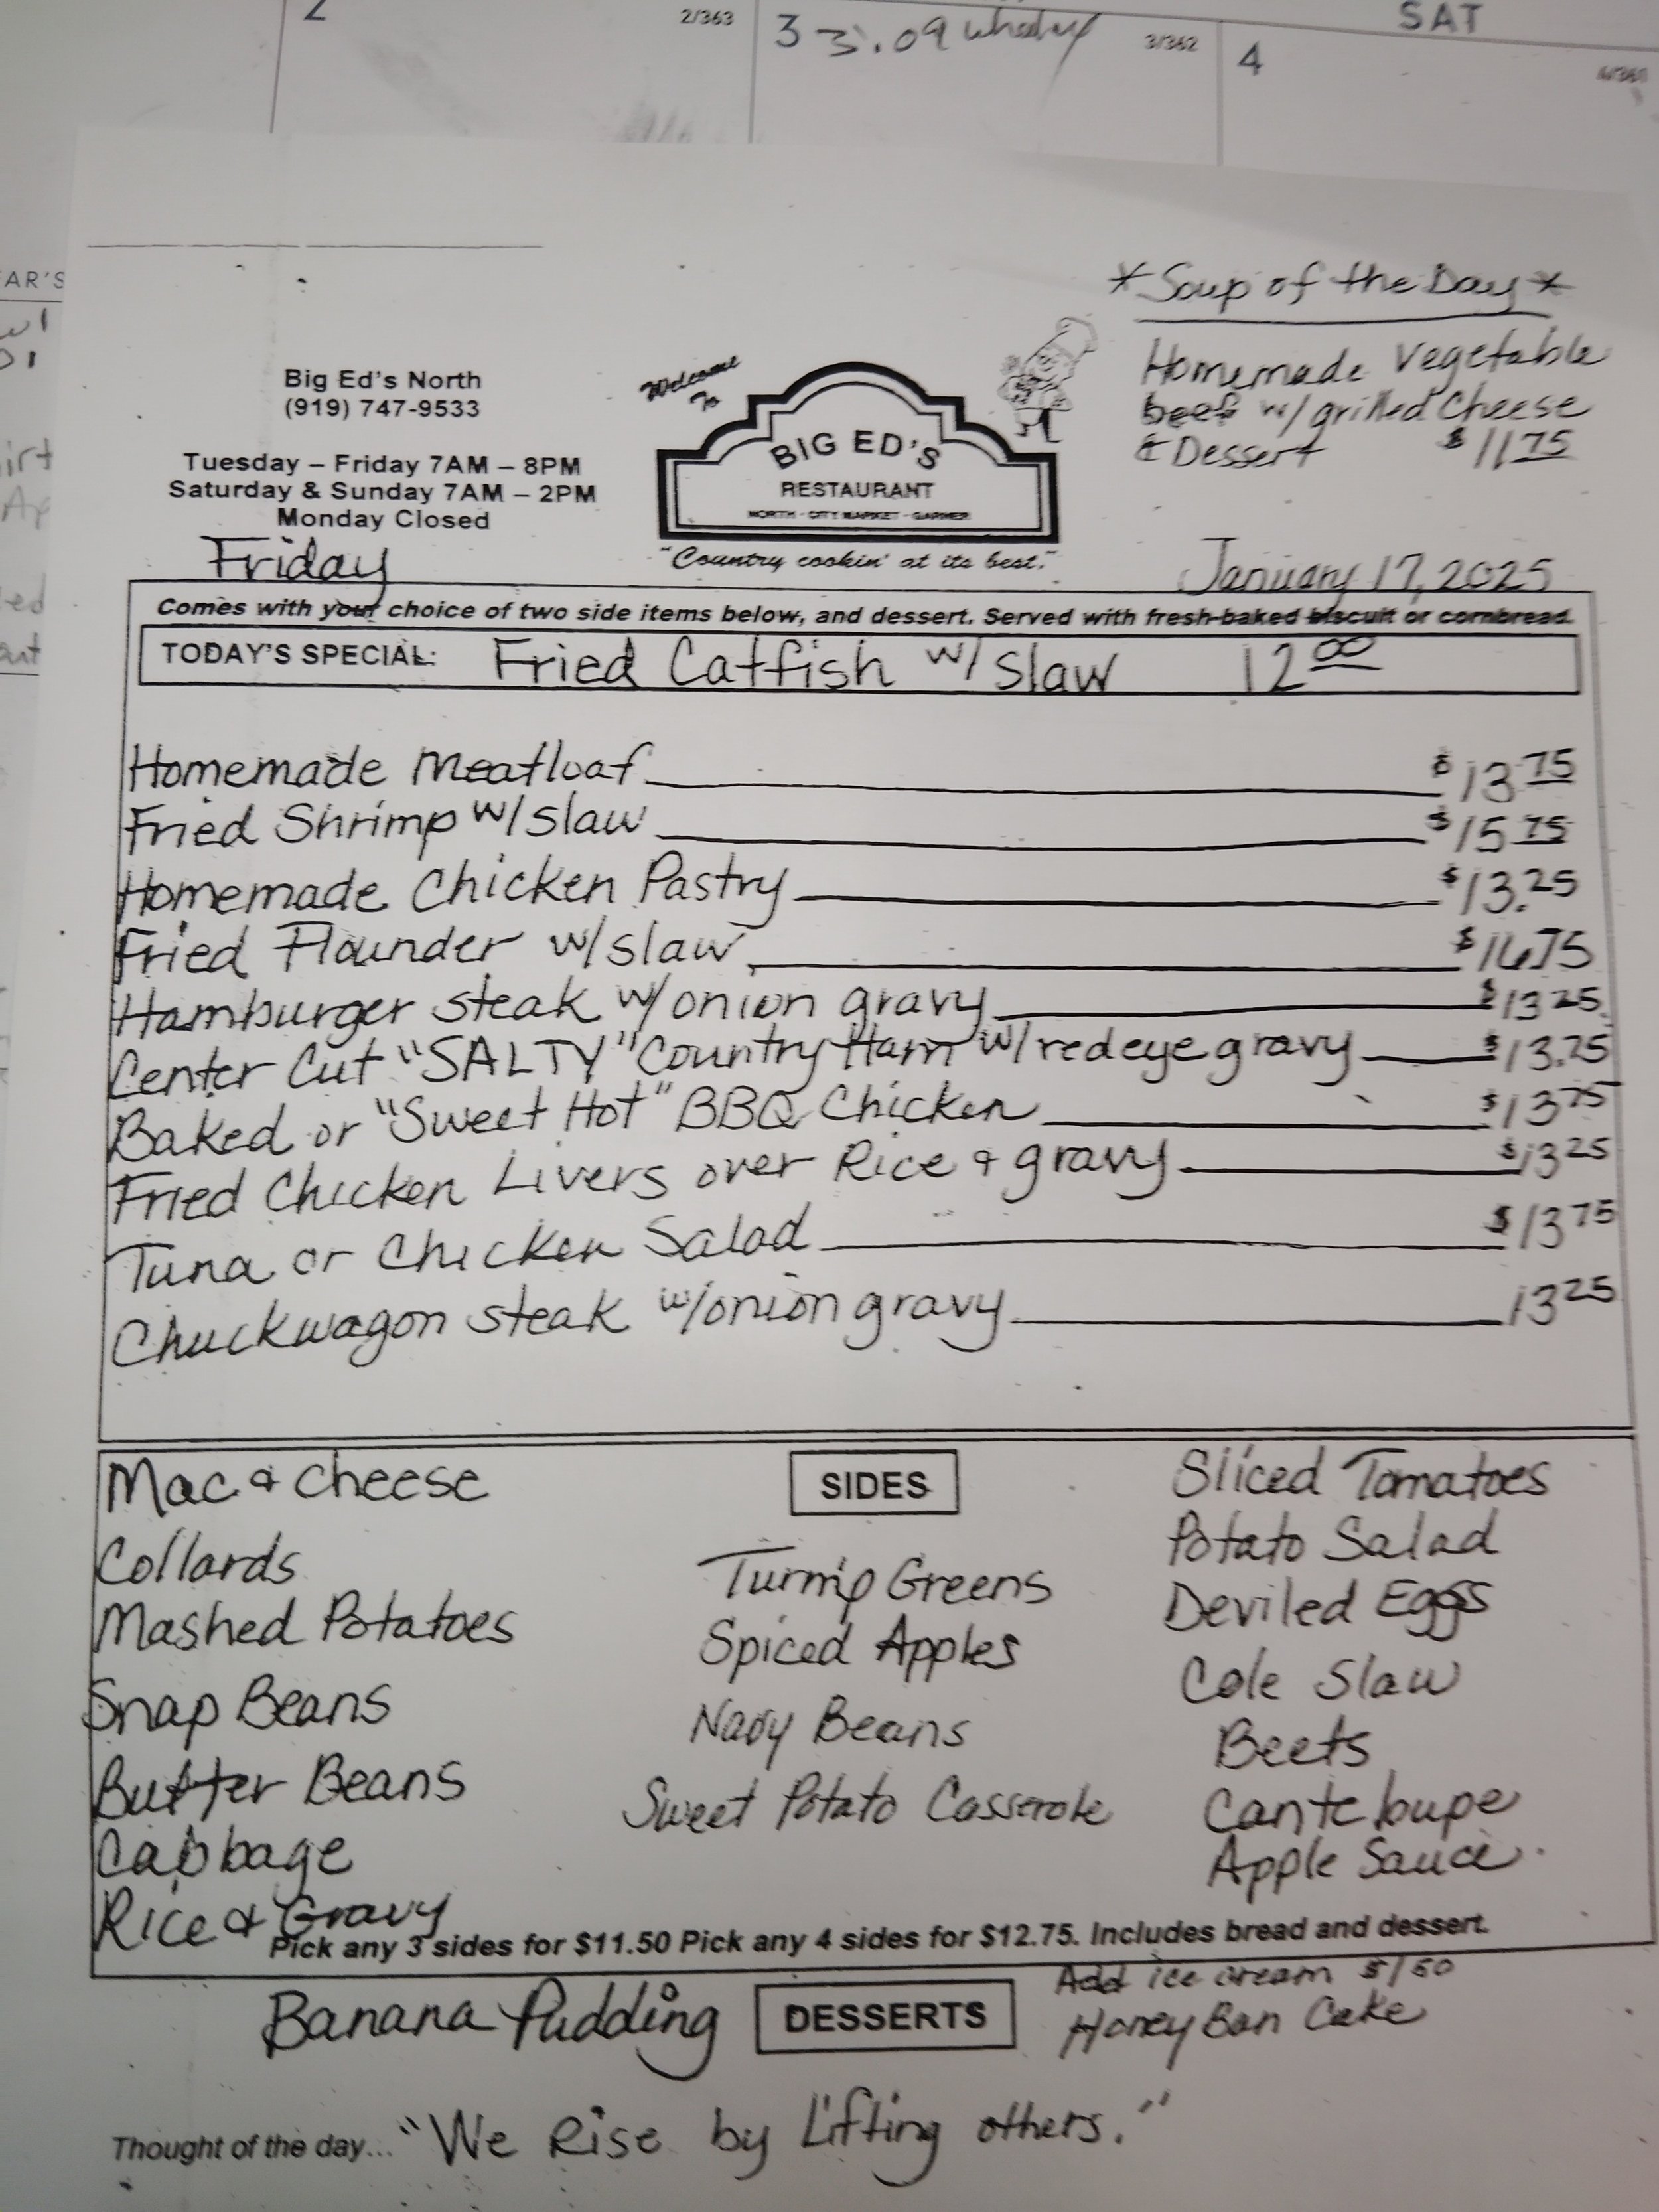 2
2/363
3
3.09
3/362
SAT
4
4/361
AR'S
irt
ed
*Soup of the Day*
Homemade Vegetable
beef w/grilled Cheese
& Dessert $11.75
Big Ed's North
(919) 747-9533
Tuesday – Friday 7AM – 8PM
Saturday & Sunday 7AM – 2PM
Monday Closed
Welcome
To
BIG ED'S
RESTAURANT
NORTH - CITY MARKET - GARNER
"Country cookin' at its best."
Friday
January 17, 2025
Comes with your choice of two side items below, and dessert. Served with fresh-baked biscuit or cornbread.
TODAY'S SPECIAL: Fried Catfish w/ slaw 12 00
Homemade Meatloaf $13 75
Fried Shrimp w/slaw $15 75
Homemade Chicken Pastry $13.25
Fried Flounder w/slaw $16.75
Hamburger steak w/onion gravy $13 25
Center Cut "SALTY" Country Ham w/redeye gravy $13.75
Baked or "Sweet Hot" BBQ Chicken $13 75
Fried Chicken Livers over Rice & gravy $13 25
Tuna or Chicken Salad $13 75
Chuckwagon steak w/onion gravy 13 25
SIDES
Mac & Cheese
Collards
Mashed Potatoes
Snap Beans
Butter Beans
Cabbage
Rice & Gravy
Turnip Greens
Spiced Apples
Navy Beans
Sweet Potato Casserole
Sliced Tomatoes
Potato Salad
Deviled Eggs
Cole Slaw
Beets
Canteloupe
Apple Sauce
Pick any 3 sides for $11.50 Pick any 4 sides for $12.75. Includes bread and dessert.
Banana Pudding
DESSERTS
Add ice cream $1 50
Honey Bun Cake
Thought of the day... "We Rise by Lifting others."